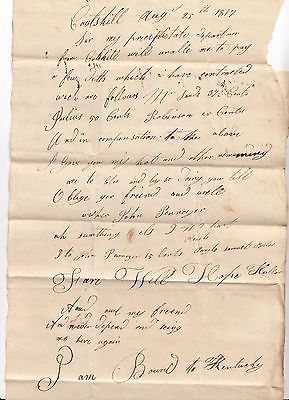 Coatshill Augst 25th 1817
for my precipitate departure
from Cotshill will unable me to pay
a few Detts which i have contracted
wich are follows Mr Sands 37 Cents
Julius 50 Cents Robinson 25 Cents
And in compensation to the above
I give you my hat and other
me to blis and by so doing you will
Oblige yor friend and well
wisher John Pennoyer
oh sumthing els I
I to pa Pennoyer 15 Cents
Fare Well Hope Fuller
And owl my freend
depend and seeing
no here again
I am Bound to Kentucky